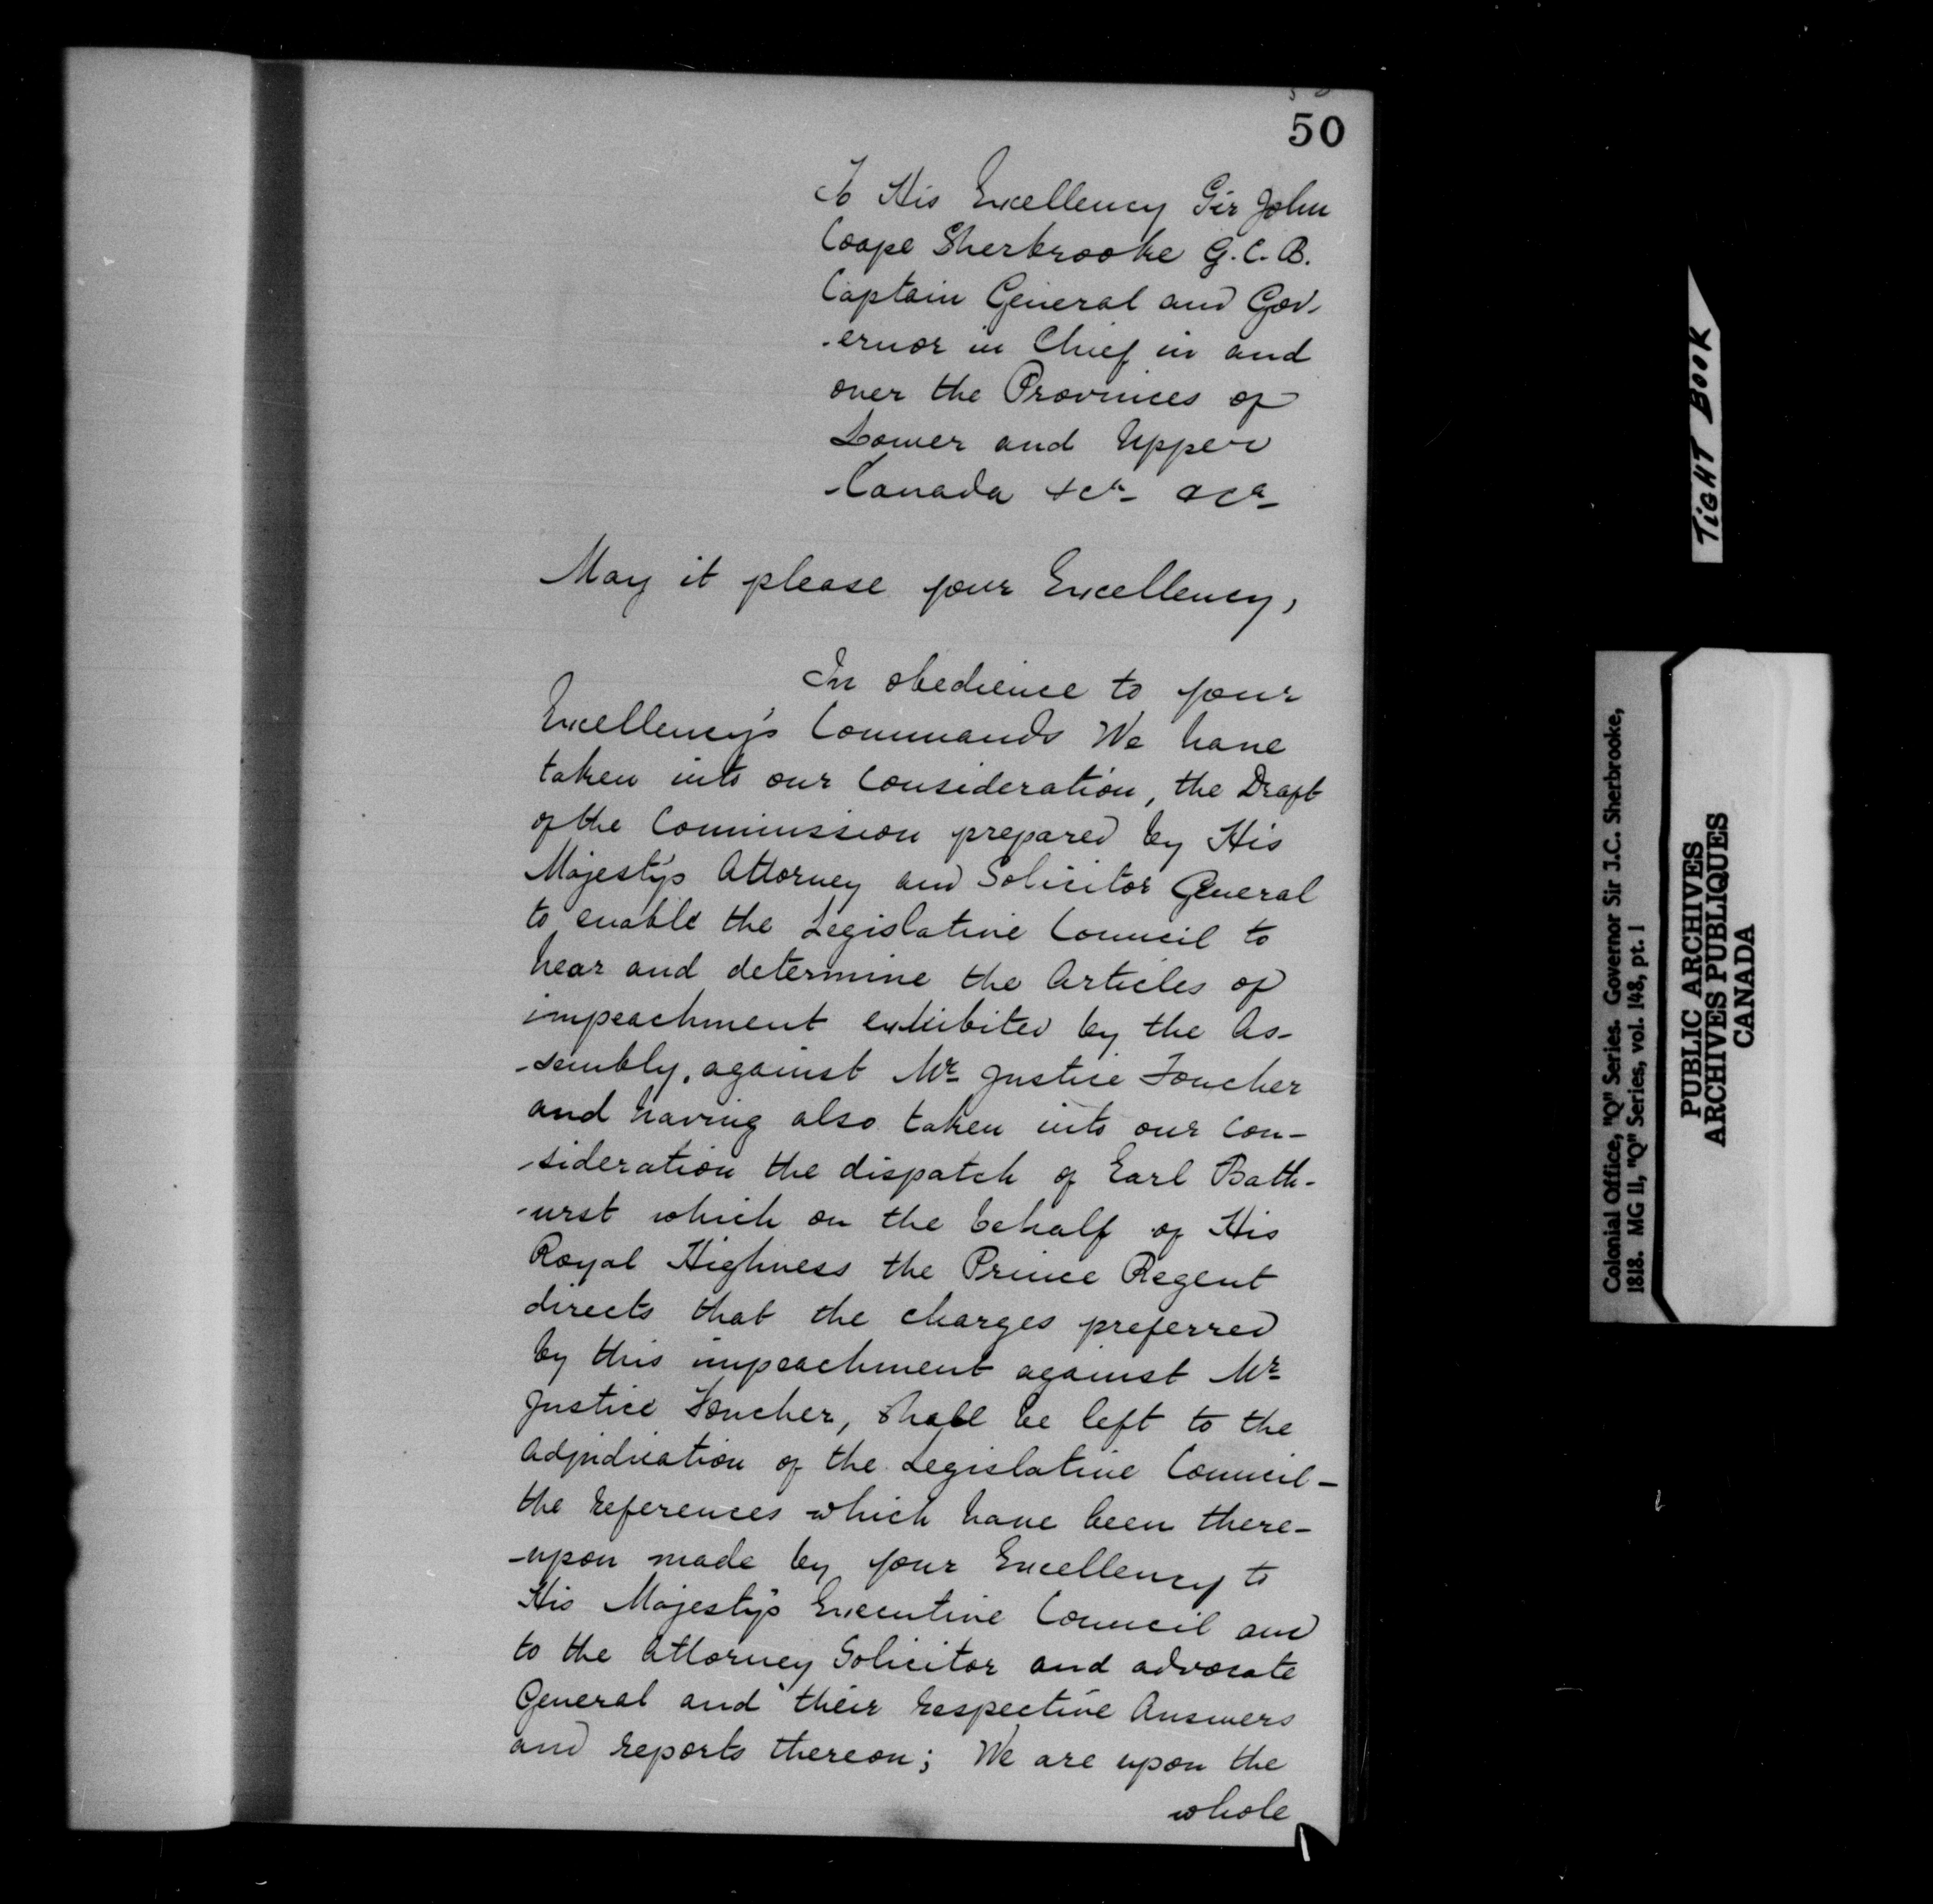 50
To His Excellency Sir John
Coape Sherbrooke G.C.B.
Captain General and Gov-
-ernor in Chief in and
over the Provinces of
Lower and Upper
Canada &ca &ca
May it please your Excellency,
In obedience to your
Excellency's Commands We have
taken into our Consideration, the Draft
of the Commission prepared by His
Majesty's Attorney and Solicitor General
to enable the Legislative Council to
hear and determine the Articles of
impeachment exhibited by the As-
-sembly, against Mr Justice Foucher
and having also taken into our Con-
-sideration the dispatch of Earl Bath-
-urst which on the behalf of His
Royal Highness the Prince Regent
directs that the charges preferred
by this impeachment against Mr
Justice Foucher, shall be left to the
Adjudication of the Legislative Council -
the references which have been there-
-upon made by your Excellency to
His Majesty's Executive Council and
to the Attorney Solicitor and advocate
General and their respective Answers
and reports thereon; We are upon the
whole
TIGHT BOOK
Colonial Office, "Q" Series. Governor Sir J.C. Sherbrooke,
1818. MG 11, "Q" Series, vol. 148, pt. 1
PUBLIC ARCHIVES
ARCHIVES PUBLIQUES
CANADA